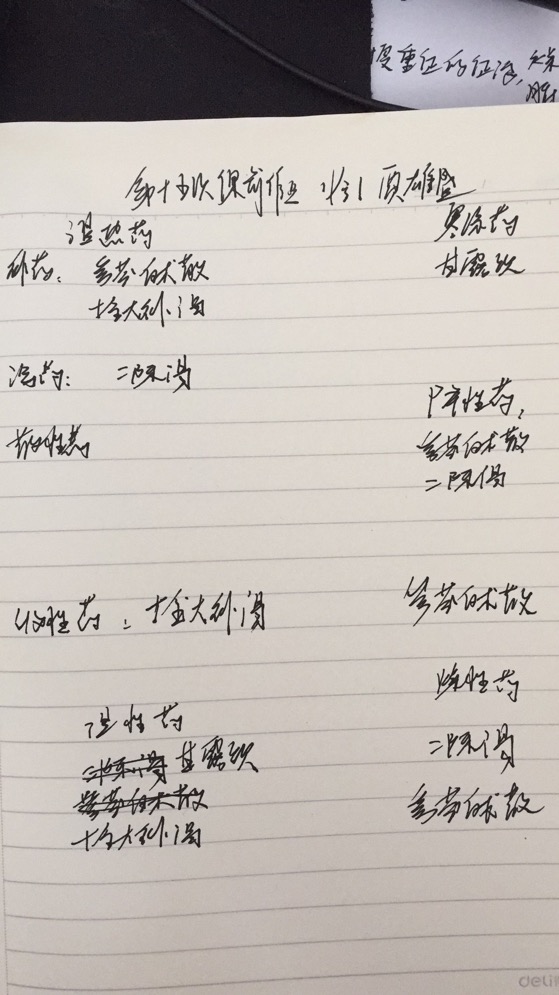 慢重症的征法,
第十五次课前作业
温热药
寒凉药
补药：参苓白术散
甘露饮
十全大补汤
泻药： 二陈汤
降性药,
散性药
参苓白术散
二陈汤
收性药： 十全大补汤
参苓白术散
燥性药
湿性药
二陈汤 甘露饮
二陈汤
参苓白术散
参苓白术散
十全大补汤
deli